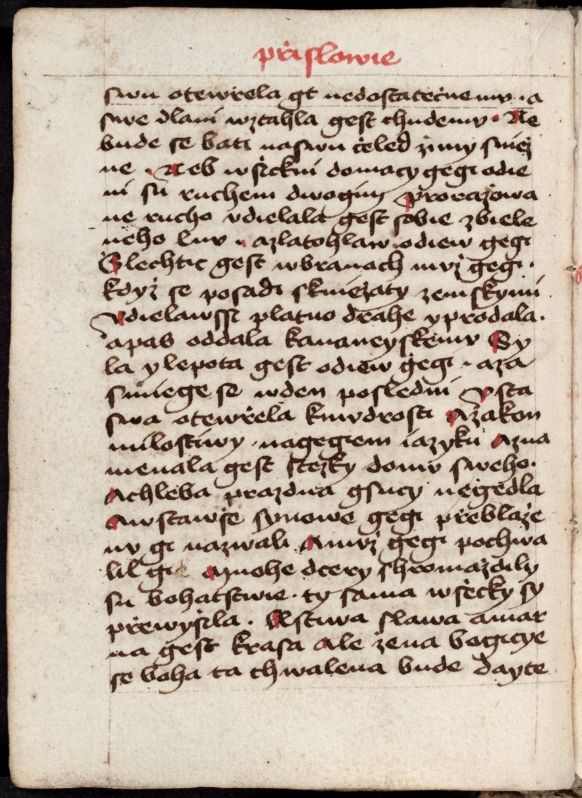 přislowie
swu otewřela gt nedostatečnemu · a
swe dlani wztahla gest chudemu · Ne
bude se bati naswu čeled zimy sniež
ne · Neb wšickni domacy gegi odie
ni su ruchem dwogim Prorazowa
ne rucho vdielala gest sobie z biele
neho lnu · azlatohlaw odiew gegi
Slechtic gest wbranach muž gegi ·
kdyż se posadi skniežaty zemskymi
vdielawssi platno drahe yprodala ·
apas oddala kananeyskemu Sy
la ylepota gest odiew gegi · aza
smiege se wden posledni Vsta
swa otewřela kmudrosti Azakon
milostiwy · nagegiem iazyku Azna
menala gest stezky domu sweho ·
Achleba prazdna gsucy negedla
Awstawše synowe gegi přeblaže
nu gi nazwali Amuž gegi pochwa
lil gi Mnohe dcery shromazdily
su bohatstwie · ty sama wšecky sy
přewyšila · Lstiwa slawa amar
na gest krasa ale žena bogicye
se boha ta chwalena bude dayte